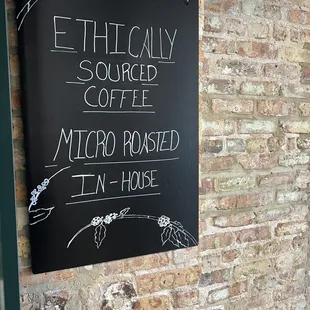 ETHICALLY
SOURCED
COFFEE
MICRO ROASTED
IN-HOUSE